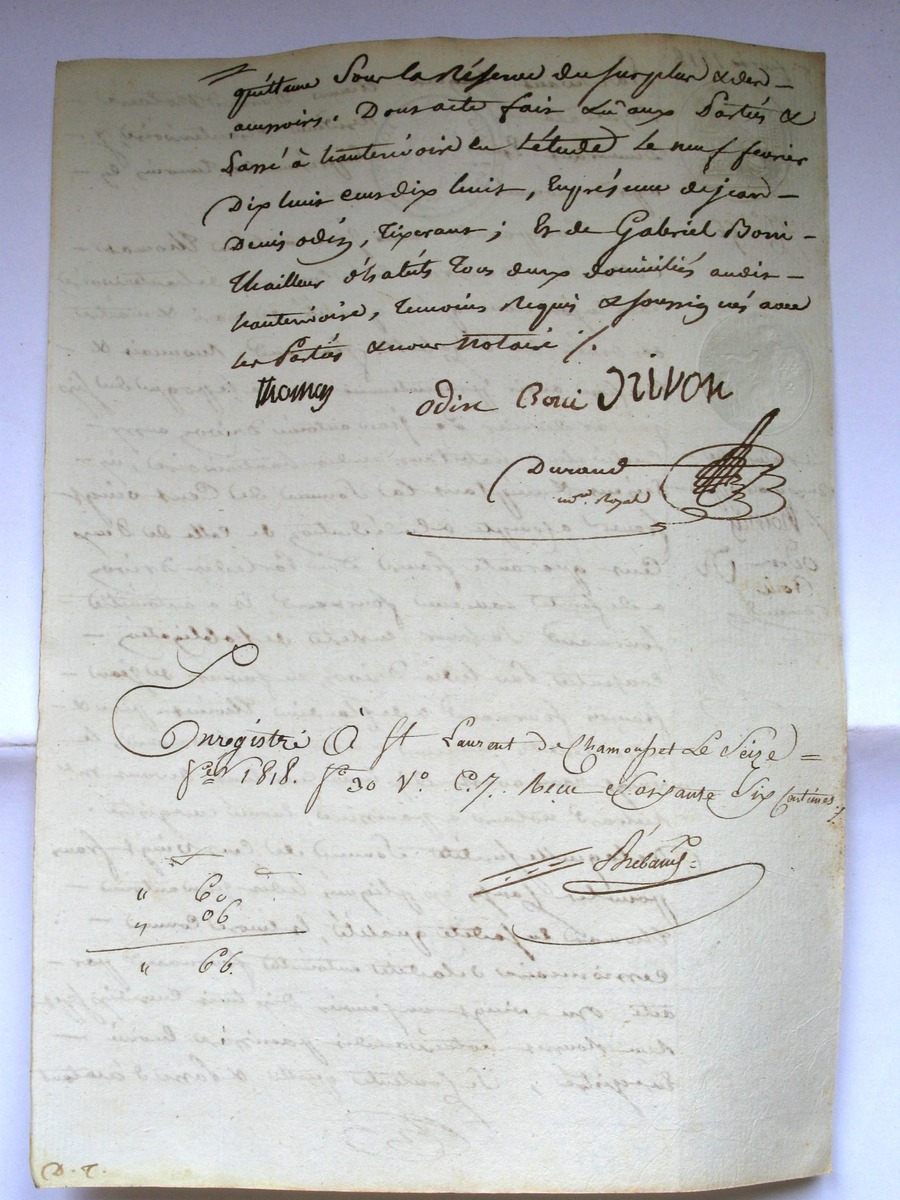 quittance Sous la Réserve du surplus & des
accessoires. Dont acte fait & lû aux Partiés &
Passé à hauterivoire en L'étude Le neuf fevrier
Dix huit cent dix huit, En présence de jean
Denis odin, Tixerant; Et de Gabriel Boni
thailleur d'habits Tous deux domiciliés audit
hauterivoire, Temoins Requis & soussignés avec
les Partiés & nous Notaire /.
Thomas odin Boni Jrivon
Durand
no.re Royal
Enregistré à St Laurent De Chamousset Le Seize
f.er 1818. f.o 30 V.o C. 7. Reçu Soixante Six Centimes
" 60
" 06
" 66.
D. T.